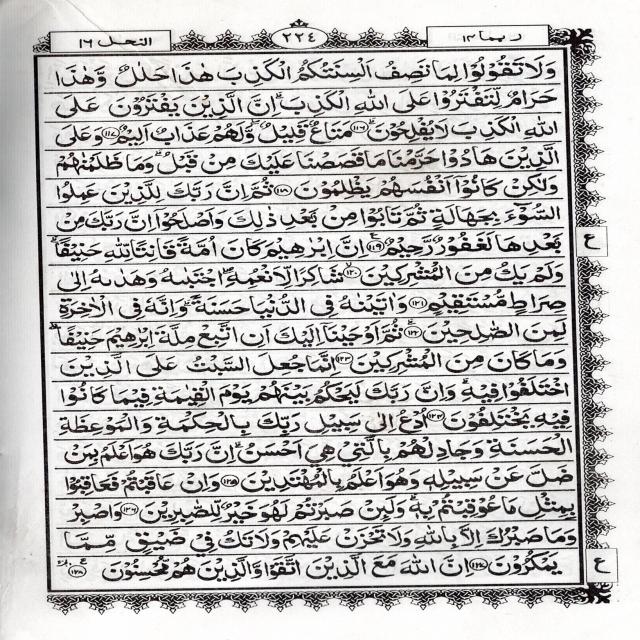 ربما ١٤
٢٢٤
النحل ١٦
وَلَا تَقُوْلُوْا لِمَا تَصِفُ اَلْسِنَتُكُمُ الْكَذِبَ هٰذَا حَلٰلٌ وَّهٰذَا
حَرَامٌ لِّتَفْتَرُوْا عَلَى اللّٰهِ الْكَذِبَ ؕ اِنَّ الَّذِيْنَ يَفْتَرُوْنَ عَلَى
اللّٰهِ الْكَذِبَ لَا يُفْلِحُوْنَ ؕ﴿۱۱۶﴾ مَتَاعٌ قَلِيْلٌ ۪ وَّلَهُمْ عَذَابٌ اَلِيْمٌ ﴿۱۱۷﴾ وَعَلَى
الَّذِيْنَ هَادُوْا حَرَّمْنَا مَا قَصَصْنَا عَلَيْكَ مِنْ قَبْلُ ۚ وَمَا ظَلَمْنٰهُمْ
وَلٰكِنْ كَانُوْۤا اَنْفُسَهُمْ يَظْلِمُوْنَ ﴿۱۱۸﴾ ثُمَّ اِنَّ رَبَّكَ لِلَّذِيْنَ عَمِلُوا
السُّوْٓءَ بِجَهَالَةٍ ثُمَّ تَابُوْا مِنْۢ بَعْدِ ذٰلِكَ وَاَصْلَحُوْۤا اِنَّ رَبَّكَ مِنْۢ
بَعْدِهَا لَغَفُوْرٌ رَّحِيْمٌ ﴿۱۱۹﴾ اِنَّ اِبْرٰهِيْمَ كَانَ اُمَّةً قَانِتًا لِّلّٰهِ حَنِيْفًا ؕ
ع
وَلَمْ يَكُ مِنَ الْمُشْرِكِيْنَ ﴿۱۲۰﴾ شَاكِرًا لِّاَنْعُمِهٖ ؕ اِجْتَبٰىهُ وَهَدٰىهُ اِلٰى
صِرَاطٍ مُّسْتَقِيْمٍ ﴿۱۲۱﴾ وَاٰتَيْنٰهُ فِى الدُّنْيَا حَسَنَةً ؕ وَاِنَّهٗ فِى الْاٰخِرَةِ
لَمِنَ الصّٰلِحِيْنَ ؕ﴿۱۲۲﴾ ثُمَّ اَوْحَيْنَاۤ اِلَيْكَ اَنِ اتَّبِعْ مِلَّةَ اِبْرٰهِيْمَ حَنِيْفًا ؕ
وَمَا كَانَ مِنَ الْمُشْرِكِيْنَ ﴿۱۲۳﴾ اِنَّمَا جُعِلَ السَّبْتُ عَلَى الَّذِيْنَ
اخْتَلَفُوْا فِيْهِ ؕ وَاِنَّ رَبَّكَ لَيَحْكُمُ بَيْنَهُمْ يَوْمَ الْقِيٰمَةِ فِيْمَا كَانُوْا
فِيْهِ يَخْتَلِفُوْنَ ﴿۱۲۴﴾ اُدْعُ اِلٰى سَبِيْلِ رَبِّكَ بِالْحِكْمَةِ وَالْمَوْعِظَةِ
الْحَسَنَةِ وَجَادِلْهُمْ بِالَّتِيْ هِيَ اَحْسَنُ ؕ اِنَّ رَبَّكَ هُوَ اَعْلَمُ بِمَنْ
ضَلَّ عَنْ سَبِيْلِهٖ وَهُوَ اَعْلَمُ بِالْمُهْتَدِيْنَ ﴿۱۲۵﴾ وَاِنْ عَاقَبْتُمْ فَعَاقِبُوْا
بِمِثْلِ مَا عُوْقِبْتُمْ بِهٖ ؕ وَلَئِنْ صَبَرْتُمْ لَهُوَ خَيْرٌ لِّلصّٰبِرِيْنَ ﴿۱۲۶﴾ وَاصْبِرْ
وَمَا صَبْرُكَ اِلَّا بِاللّٰهِ وَلَا تَحْزَنْ عَلَيْهِمْ وَلَا تَكُ فِيْ ضَيْقٍ مِّمَّا
يَمْكُرُوْنَ ﴿۱۲۷﴾ اِنَّ اللّٰهَ مَعَ الَّذِيْنَ اتَّقَوْا وَّالَّذِيْنَ هُمْ مُّحْسِنُوْنَ ﴿۱۲۸﴾
ع